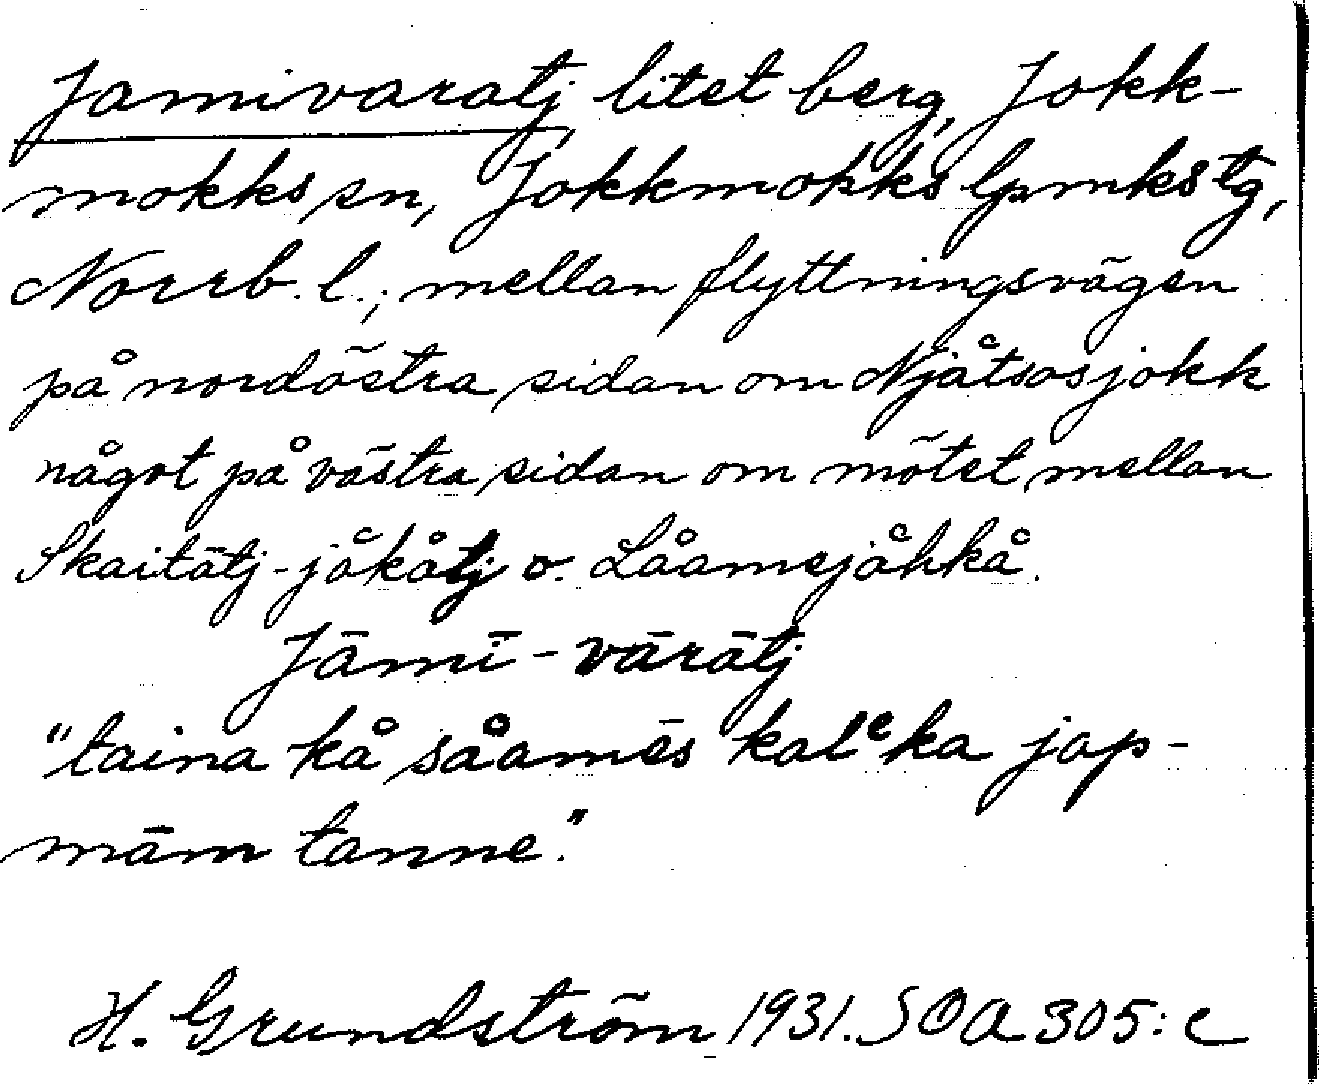 Jamivaratj, litet berg, Jokk-
mokks sn, Jokkmokks lpmkstg,
Norrb. l.; mellan flyttningsvägen
på nordöstra sidan om Njåtsosjokk
något på västra sidan om mötet mellan
Skaitātj-jåkåtj o. Låamejåhkå.
Jāmī-vāratj
"taina kå såamēs kalᵉka jap-
mām tanne."
H. Grundström 1931. SOA 305:c